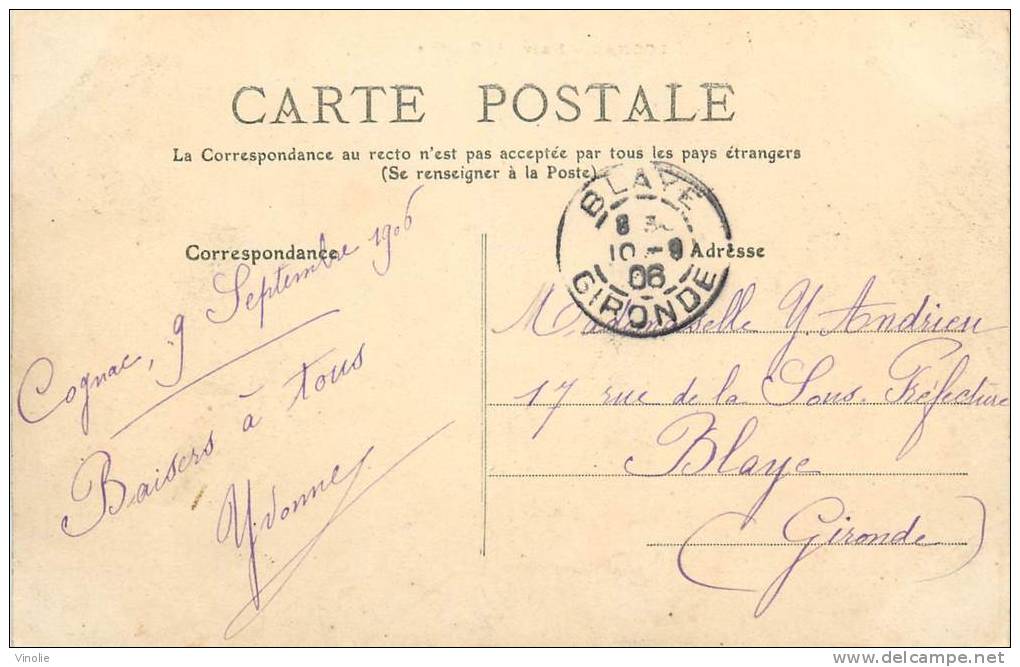 CARTE POSTALE
La Correspondance au recto n'est pas acceptée par tous les pays étrangers
(Se renseigner à la Poste)
BLAYE
8
10 - 9
06
GIRONDE
Correspondance
Cognac, 9 Septembre 1906
Baisers à tous
Yvonne
Adresse
Mademoiselle Y. Andrieu
17 rue de la Sous-Préfecture
Blaye
(Gironde)
Vinolie
www.delcampe.net